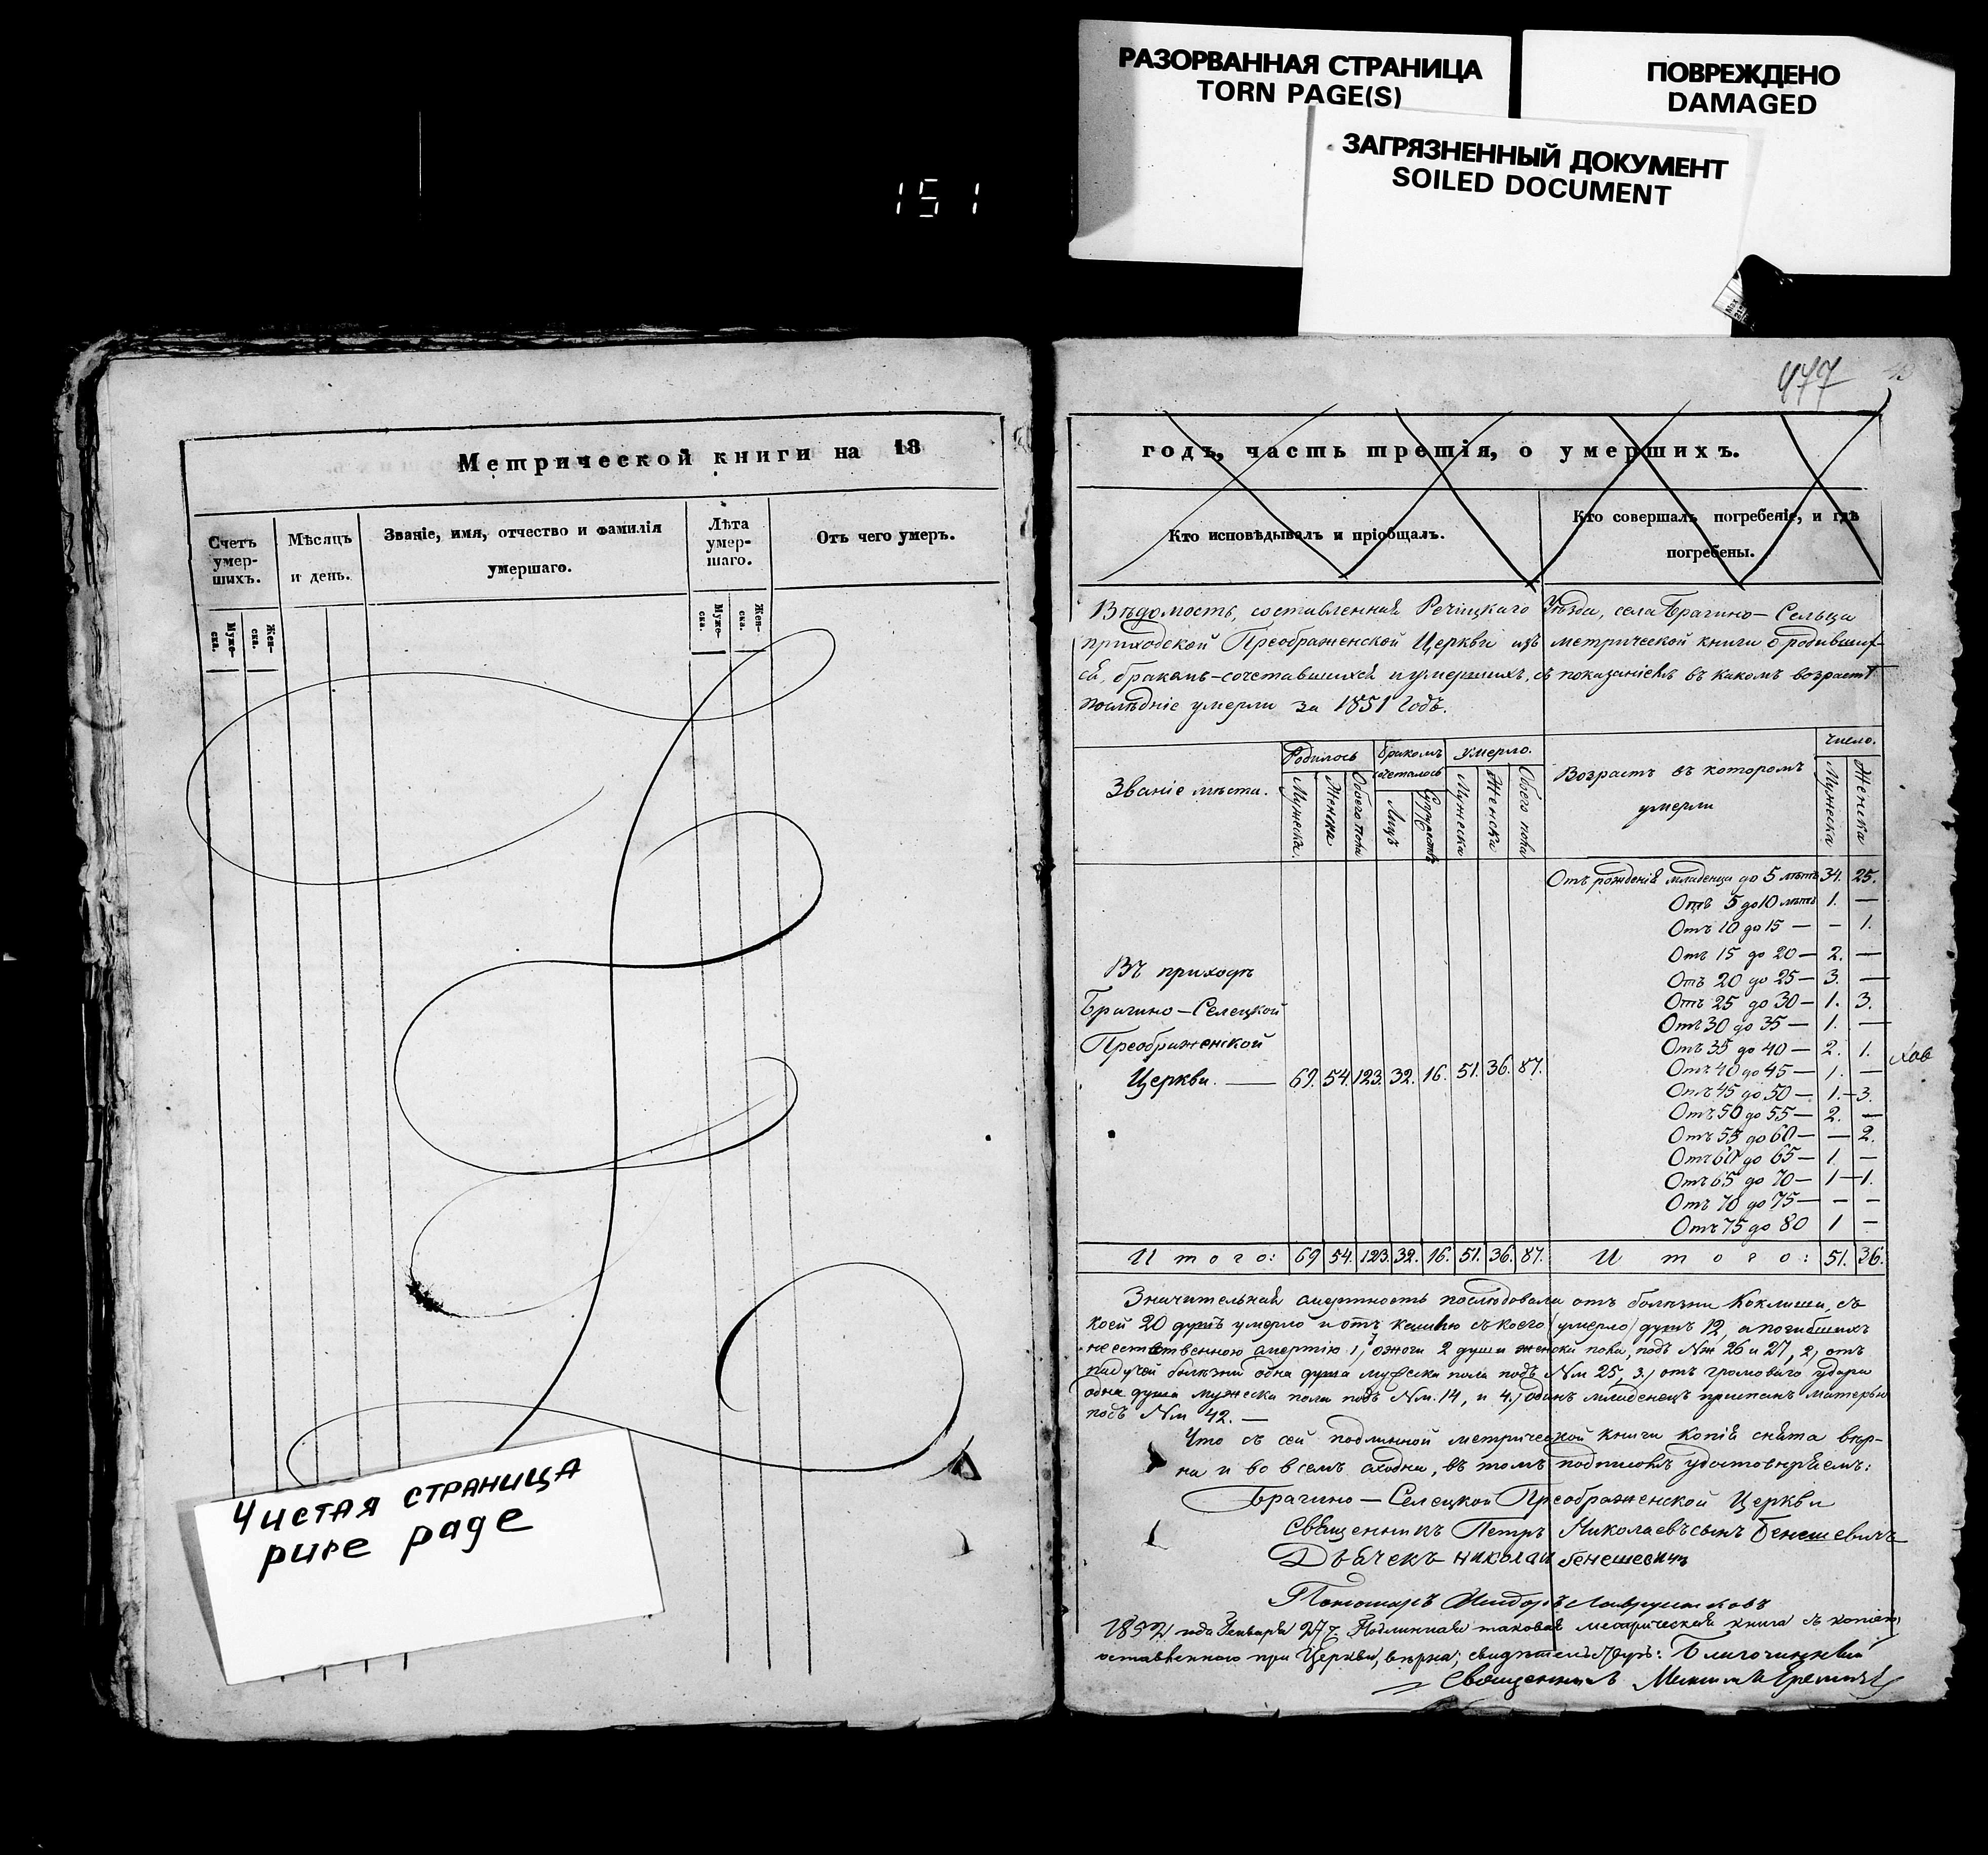 РАЗОРВАННАЯ СТРАНИЦА
TORN PAGE(S)
ПОВРЕЖДЕНО
DAMAGED
ЗАГРЯЗНЕННЫЙ ДОКУМЕНТ
SOILED DOCUMENT
151
477
Метрической книги на 18
Счетъ умер-шихъ.
Муже-ска.
Жен-ска.
Мѣсяцъ и день.
Званіе, имя, отчество и фамилія
умершаго.
Лѣта умер-шаго.
Муже-ска.
Жен-ска.
Отъ чего умеръ.
Чистая страница
pure page
годъ, часть третія, о умершихъ.
Кто исповѣдывалъ и пріобщалъ.
Кто совершалъ погребеніе, и гдѣ
погребены.
Вѣдомость, составленная Речицкаго Уѣзда, села Брагино-Сельца
приходской Преображенской Церкви изъ метрической книги о родивших-
ся, бракомъ-сочетавшихся и умершихъ, съ показаніемъ въ какомъ возрастѣ
послѣдніе умерли за 1851 годъ.
Званіе мѣста.
Родилось
Мужеска.
Женска
Обоего пола
бракомъ сочеталось
Лицъ
Супружествъ
Умерло.
Мужеска
Женска
Обоего пола
Возрастъ въ которомъ
умерли
Число.
Мужеска
Женска
Отъ рожденія младенца до 5 лѣтъ 34. 25.
Отъ 5 до 10 лѣтъ 1. —
Отъ 10 до 15 — – 1.
Отъ 15 до 20 — 2. —
Отъ 20 до 25 — 3. —
Отъ 25 до 30 — 1. 3.
Отъ 30 до 35 — 1. —
Отъ 35 до 40 — 2. 1.
Отъ 40 до 45 — 1. —
Отъ 45 до 50 — 1. – 3.
Отъ 50 до 55 — 2. —
Отъ 55 до 60 — — 2.
Отъ 60 до 65 — 1. —
Отъ 65 до 70 — 1 — 1.
Отъ 70 до 75 — – –
Отъ 75 до 80 1 –
Въ приходѣ
Брагино-Селецкой
Преображенской
Церкви. — 69. 54. 123. 32. 16. 51. 36. 87.
Итого: 69 54. 123. 32. 16. 51. 36. 87. Итого: 51. 36.
Значительная смертность послѣдовала отъ болѣзни Коклюша, съ
коей 20 душъ умерло и отъ кашлю съ коего (умерло) душъ 12, а погибшихъ
неестественною смертію 1, ожоги 2 души женска пола, подъ №м 26 и 27, 2, отъ
падучей болѣзни одна душа мужеска пола подъ №м 25, 3, отъ громоваго удара
одна душа мужеска пола подъ №м. 14, и 4, одинъ младенецъ приспанъ матерью
подъ №м 42. —
Что съ сей подлинной метрической книги копія снята вѣр-
на и во всемъ сходна, въ томъ подписомъ удостовѣряемъ:
Брагино-Селецкой Преображенской Церкви
Священникъ Петръ Николаевъ сынъ Бенешевичъ
Дьячекъ Николай Бенешевичъ
Пономарь
1852 года Генваря 27 Подлинная таковая метрическая книга съ копіею,
оставленною при Церкви, вѣрна; Благочинный
Священникъ